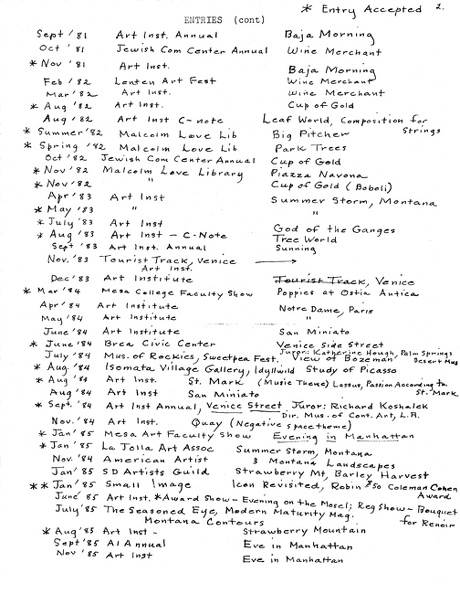 * Entry Accepted 2.
ENTRIES (cont)
Sept '81 Art Inst. Annual Baja Morning
Oct '81 Jewish Com Center Annual Wine Merchant
* Nov '81 Art Inst. Baja Morning
Feb '82 Lenten Art Fest Wine Merchant
Mar '82 Art Inst. Wine Merchant
* Aug '82 Art Inst. Cup of Gold
Aug '82 Art Inst C-note Leaf World, Composition for Strings
* Summer '82 Malcolm Love Lib Big Pitcher
* Spring '82 Malcolm Love Lib Park Trees
Oct '82 Jewish Com Center Annual Cup of Gold
* Nov '82 Malcolm Love Library Piazza Navona
* Nov '82 " Cup of Gold (Boboli)
Apr '83 Art Inst Summer Storm, Montana
* May '83 " "
* July '83 Art Inst God of the Ganges
* Aug '83 Art Inst - C-Note Tree World
Sept '83 Art Inst. Annual Sunning
Nov. '83 Tourist Track, Venice →
Art Inst.
Dec '83 Art Institute Tourist Track, Venice
* Mar '84 Mesa College Faculty Show Poppies at Ostia Antica
Apr '84 Art Institute Notre Dame, Paris
May '84 Art Institute "
June '84 Art Institute San Miniato
* June '84 Brea Civic Center Venice Side Street
Juror: Katherine Hough, Palm Springs Desert Mus
July '84 Mus. of Rockies, Sweetpea Fest. View of Bozeman
* Aug '84 Isomata Village Gallery, Idyllwild Study of Picasso
* Aug '84 Art Inst. St. Mark (Music Theme) Lassus, Passion According to St. Mark
Aug '84 Art Inst San Miniato
* Sept. '84 Art Inst Annual, Venice Street Juror: Richard Koshalek
Dir. Mus. of Cont. Art, L.A.
Nov. '84 Art Inst. Quay (Negative space theme)
* Jan '85 Mesa Art Faculty Show Evening in Manhattan
* Jan '85 La Jolla Art Assoc Summer Storm, Montana
Nov '84 American Artist 3 Montana Landscapes
Jan '85 SD Artists Guild Strawberry Mt, Barley Harvest
** Jan '85 Small Image Icon Revisited, Robin $50 Coleman Cohen Award
June '85 Art Inst. *Award Show - Evening on the Mosel; Reg Show - Bouquet for Renoir
July '85 The Seasoned Eye, Modern Maturity Mag.
Montana Contours
* Aug '85 Art Inst - Strawberry Mountain
Sept '85 AI Annual Eve in Manhattan
Nov '85 Art Inst Eve in Manhattan